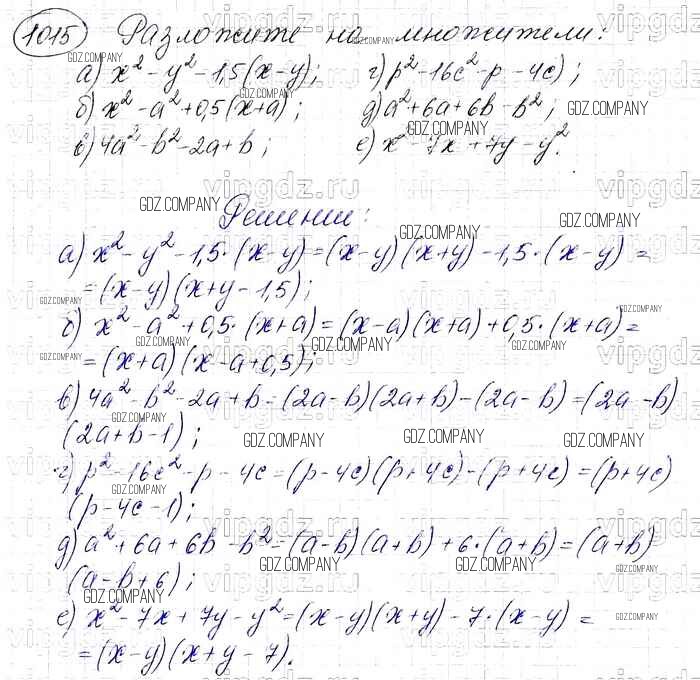 1015 Разложите на множители:
а) x² - y² - 1,5(x-y); г) p² - 16c² - p - 4c);
б) x² - a² + 0,5(x+a); д) a² + 6a + 6b - b²;
в) 4a² - b² - 2a + b; е) x² - 7x + 7y - y².
Решение:
а) x² - y² - 1,5·(x-y) = (x-y)(x+y) - 1,5·(x-y) =
= (x-y)(x+y-1,5);
б) x² - a² + 0,5·(x+a) = (x-a)(x+a) + 0,5·(x+a) =
= (x+a)(x-a+0,5);
в) 4a² - b² - 2a + b = (2a-b)(2a+b) - (2a-b) = (2a-b)
(2a+b-1);
г) p² - 16c² - p - 4c = (p-4c)(p+4c) - (p+4c) = (p+4c)
(p-4c-1);
д) a² + 6a + 6b - b² = (a-b)(a+b) + 6·(a+b) = (a+b)
(a-b+6);
е) x² - 7x + 7y - y² = (x-y)(x+y) - 7·(x-y) =
= (x-y)(x+y-7).
GDZ.COMPANY
vipgdz.ru